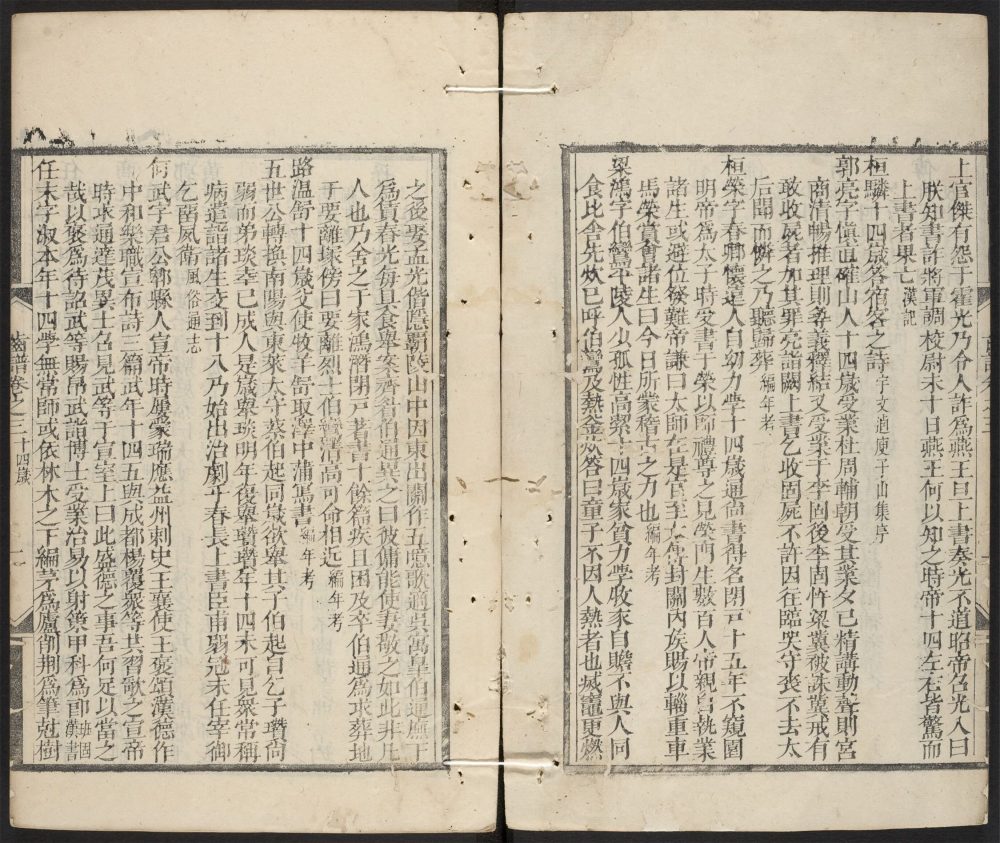 上官傑有怨于霍光乃令人詐為燕王旦上書奏光不道昭帝召光入曰
朕知書詐將軍調校尉未十日燕王何以知之時帝十四左右皆驚而
上書者果亡漢記
桓驎十四歲答宿客之詩宇文逌庾子山集序
郭亮字恒直確山人十四歲受業杜周輔朝受其業夕已精講動聲則宮
商清暢推理則尋義釋結又受業于李固後李固忤梁冀被誅冀戒有
敢收屍者加其罪亮詣闕上書乞收固屍不許因往臨哭守喪不去太
后聞而憐之乃聽歸葬編年考
桓榮字春卿懷遠人自幼力學十四歲通尚書得名閉戸十五年不窺園
明帝為太子時受書于榮以師禮尊之見榮門生數百人帝親自執業
諸生或避位發難帝謙曰太師在是官至太傅封關內侯賜以輜車車
馬榮賞會諸生曰今日所蒙稽古之力也編年考
梁鴻字伯鸞平陵人少孤性高潔十四歲家貧力學牧豕自贍不與人同
食比舍先炊已呼伯鸞及熱釜炊答曰童子不因人熱者也滅竈更燃
之後娶孟光偕隱霸陵山中因東出關作五噫歌適吳寓皐伯通廡下
為賃舂光每具食舉案齊眉伯通異之曰彼傭能使妻敬之如此非凡
人也乃舍之于家鴻濟閉戸著書十餘篇疾且困及卒伯通為求葬地
于要離塚傍曰要離烈士伯鸞清高可命相近編年考
路温舒十四歲父使牧羊舒取澤中蒲寫書編年考
五世公轉換南陽與東萊太守蔡伯起同歲欲舉其子伯起自乞子瓚尚
弱而弟琰幸已成人是歲舉琰明年復舉瓚瓚年十四未可見眾常稱
病遣詣諸生交到十八乃始出治劇平春長上書臣甫弱冠未任宰御
乞留夙衛風俗通志
何武字君公郫縣人宣帝時屢蒙瑞應益州刺史王襄使王褒頌漢德作
中和樂職宣布詩三篇武年十四五與成都楊覆眾等共習歌之宣帝
時求通達茂異士召見武等于宣室上曰此盛德之事吾何足以當之
哉以褒為待詔武等賜帛武詣博士受業治易以射策甲科為郎班固漢書
任末字淑本年十四學無常師或依林木之下編茅為廬削荆為筆尅樹
齒譜卷之三十四歲